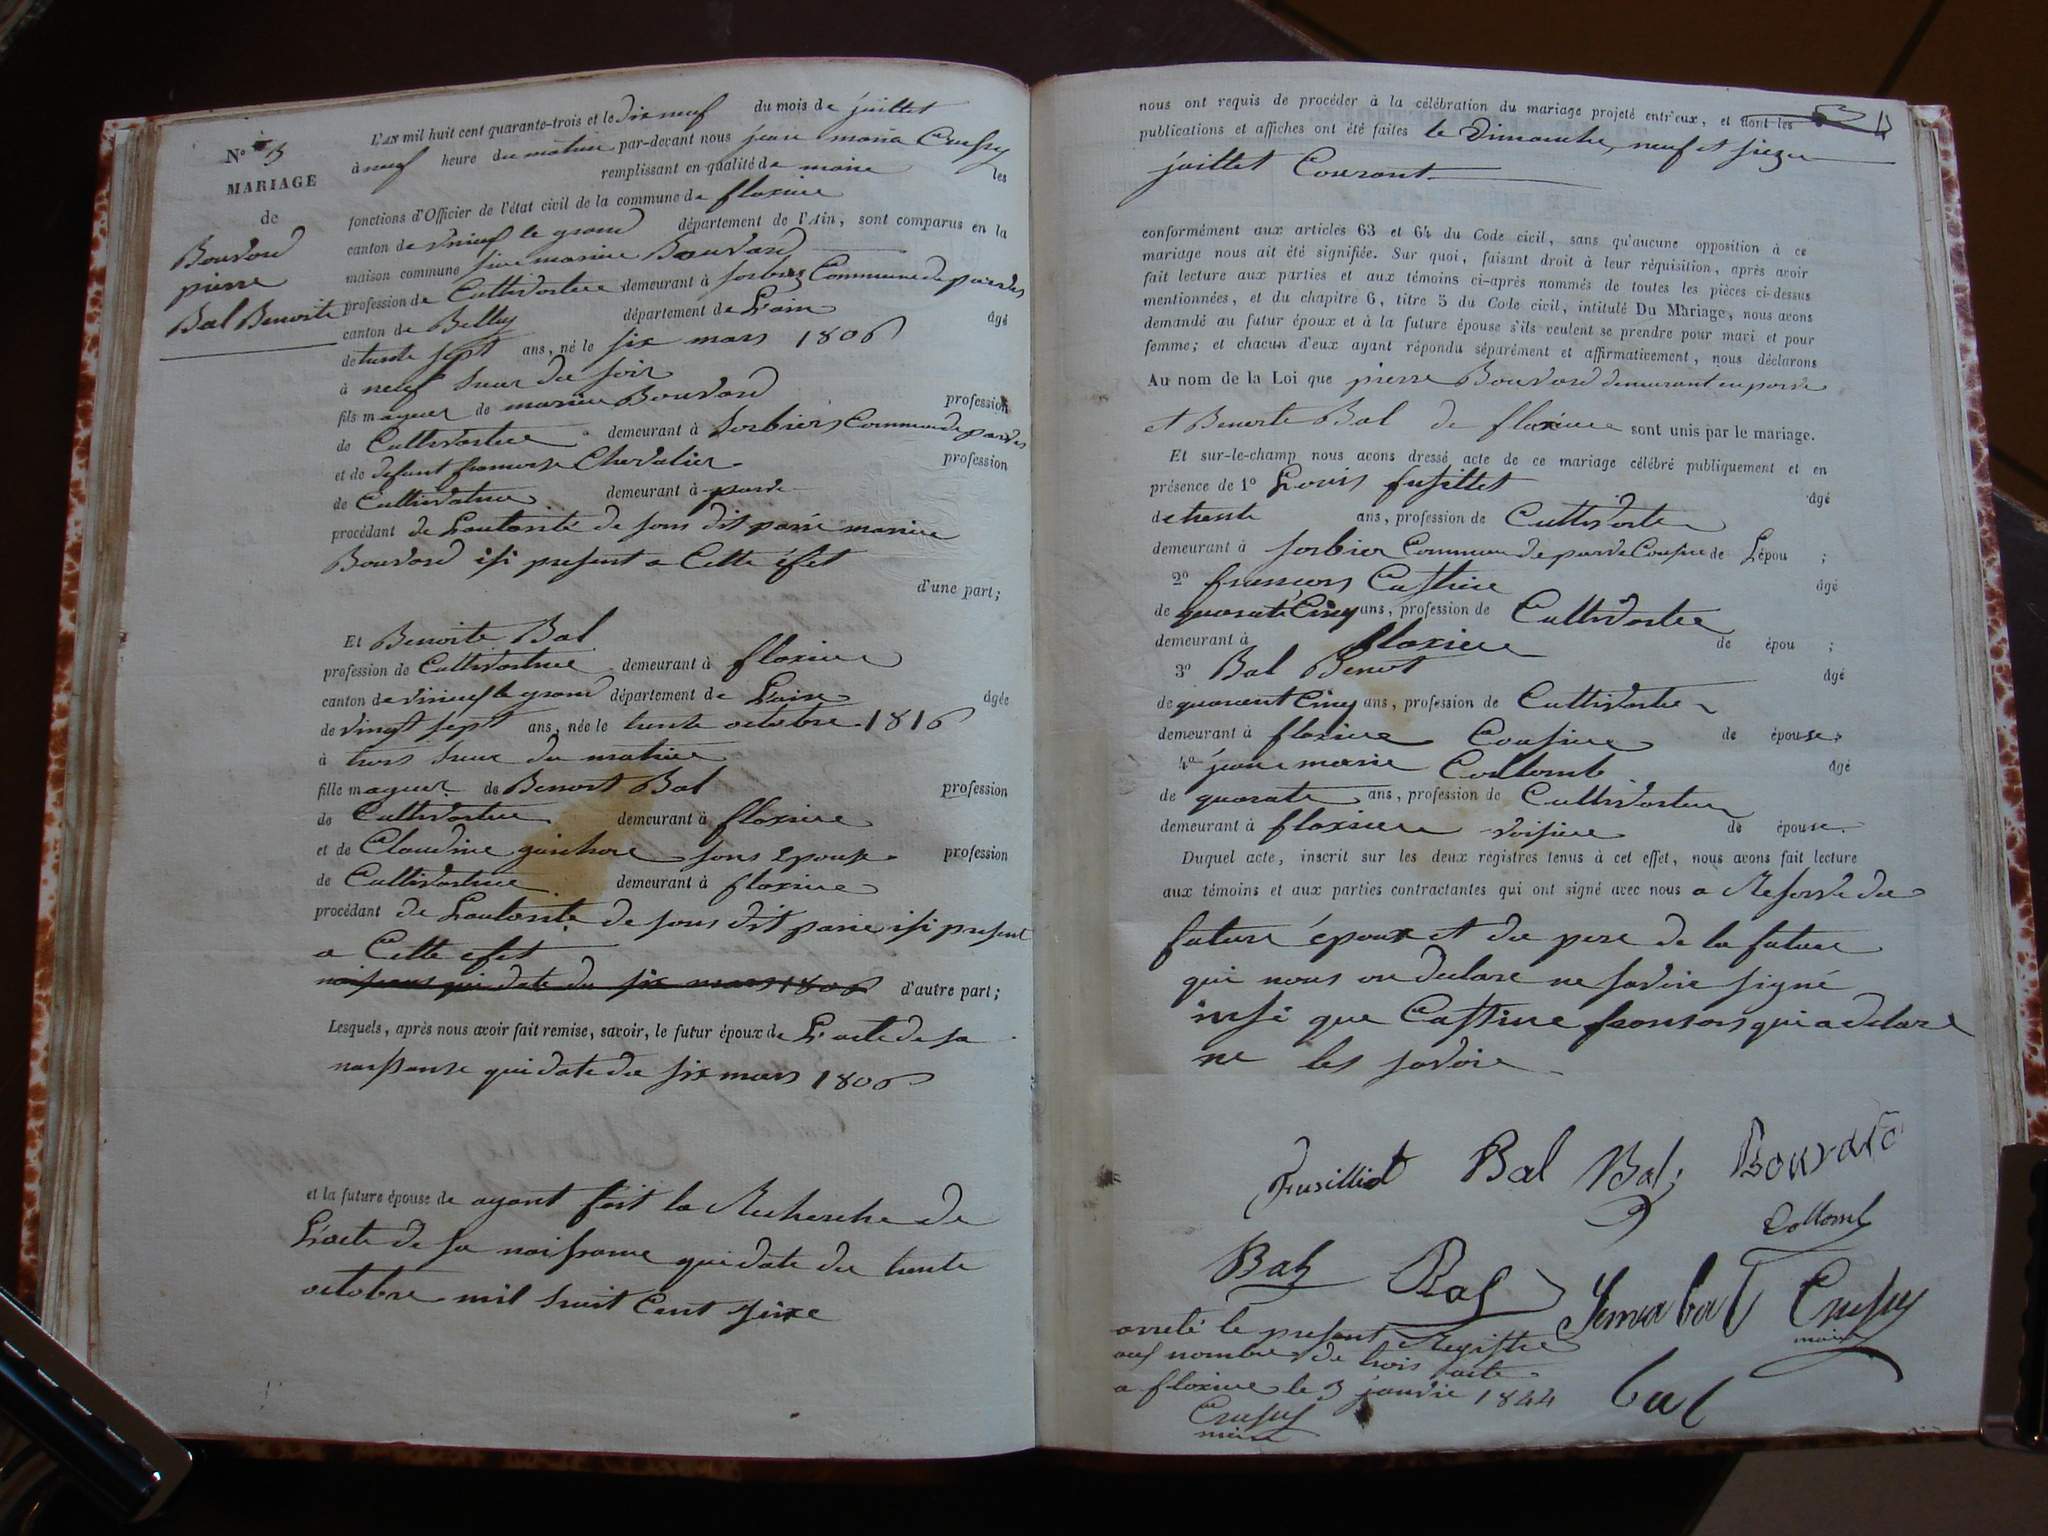 N° 3
MARIAGE
de
Bouvard
pierre
Bal Benoite
L'AN mil huit cent quarante-trois et le dix neuf du mois de juillet
à neuf heure du matin par-devant nous jean maria Crussy
remplissant en qualité de maire les
fonctions d'Officier de l'état civil de la commune de floxieu
canton de virieuf le grand département de l'Ain, sont comparus en la
maison commune Bouvard
profession de Cultivateur demeurant à sorbiers Commune de parves
canton de Belley département de L'ain âgé
de trente sept ans, né le six mars 1806
à neuf heur du soir
fils mageur de marin Bouvard profession
de Cultivateur demeurant à Sorbiers Commune de parves
et de defunt fransoise Chevalier profession
de Cultivatrice demeurant à parve
procédant de Lautorité de sons dit paire marin
Bouvard isi present a Cette éfet
d'une part;
Et Benoite Bal
profession de Cultivatrice demeurant à floxieu
canton de virieuf le grand département de L'ain âgée
de vingt sept ans, née le trente octobre 1816
à trois heur du matin
fille mageur de Benoit Bal profession
de Cultivateur demeurant à floxieu
et de Claudine sons Epouse profession
de Cultivatrice demeurant à floxieu
procédant de Lautorité de sons dit paire isi present
a Cette efet
naissans qui date du six mars 1806 d'autre part;
Lesquels, après nous avoir fait remise, savoir, le futur époux de L'acte de sa
naissanse qui date du six mars 1806
et la future épouse de ayant fait la Recherche de
L'acte de sa naissanse qui date du trente
octobre mil huit Cent sixe
nous ont requis de procéder à la célébration du mariage projeté entr'eux, et dont les
publications et affiches ont été faites le Dimanche neuf et sieze
juillet Courant
conformément aux articles 63 et 64 du Code civil, sans qu'aucune opposition à ce
mariage nous ait été signifiée. Sur quoi, faisant droit à leur réquisition, après avoir
fait lecture aux parties et aux témoins ci-après nommés de toutes les pièces ci-dessus
mentionnées, et du chapitre 6, titre 5 du Code civil, intitulé Du Mariage, nous avons
demandé au futur époux et à la future épouse s'ils veulent se prendre pour mari et pour
femme; et chacun d'eux ayant répondu séparément et affirmativement, nous déclarons
Au nom de la Loi que pierre Bouvard demeurant en parve
et Benoite Bal de floxieu sont unis par le mariage.
Et sur-le-champ nous avons dressé acte de ce mariage célébré publiquement et en
présence de 1° Louis fusillet âgé
de trente ans, profession de Cultivateur
demeurant à sorbier Commune de parve Cousin de L'épou ;
2° fransois Castin âgé
de quarate Cinq ans, profession de Cultivateur
demeurant à floxieu de épou ;
3° Bal Benoit âgé
de quarant Cinq ans, profession de Cultivateur
demeurant à floxieu Cousin de épouse;
4° jean marie Coulomb âgé
de quarate ans, profession de Cultivateur
demeurant à floxieu voisin de épouse.
Duquel acte, inscrit sur les deux régistres tenus à cet effet, nous avons fait lecture
aux témoins et aux parties contractantes qui ont signé avec nous a Reserve du
future époux et du pere de la future
qui nous on declare ne savoir signé
insi que Castin fransois qui a declare
ne les savoir
Fusilliet Bal Bal Bouvard
Collomb
Bal Bal Bal Crussy
maire
arreté le present Registre
aus nombre de trois acte
a floxieu le 3 janvie 1844 bal
Crussy
maire